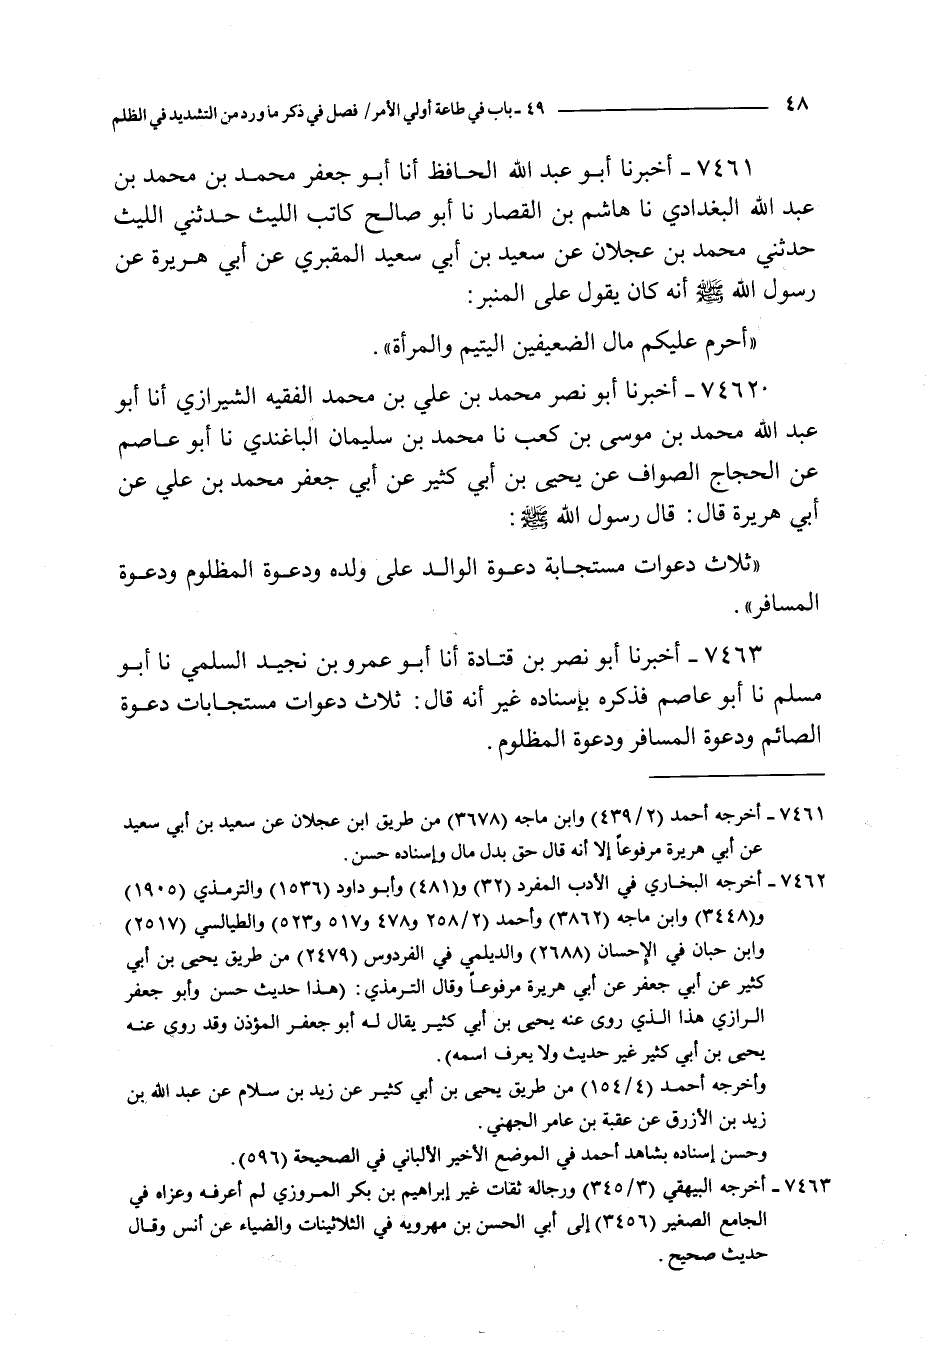 ٤٨ ٤٩ - باب في طاعة أولي الأمر/ فصل في ذكر ما ورد من التشديد في الظلم
٧٤٦١ - أخبرنا أبو عبد الله الحافظ أنا أبو جعفر محمد بن محمد بن
عبد الله البغدادي نا هاشم بن القصار نا أبو صالح كاتب الليث حدثني الليث
حدثني محمد بن عجلان عن سعيد بن أبي سعيد المقبري عن أبي هريرة عن
رسول الله ﷺ أنه كان يقول على المنبر:
«أحرم عليكم مال الضعيفين اليتيم والمرأة».
٧٤٦٢٠ - أخبرنا أبو نصر محمد بن علي بن محمد الفقيه الشيرازي أنا أبو
عبد الله محمد بن موسى بن كعب نا محمد بن سليمان الباغندي نا أبو عاصم
عن الحجاج الصواف عن يحيى بن أبي كثير عن أبي جعفر محمد بن علي عن
أبي هريرة قال: قال رسول الله ﷺ:
«ثلاث دعوات مستجابة دعوة الوالد على ولده ودعوة المظلوم ودعوة
المسافر».
٧٤٦٣ - أخبرنا أبو نصر بن قتادة أنا أبو عمرو بن نجيد السلمي نا أبو
مسلم نا أبو عاصم فذكره بإسناده غير أنه قال: ثلاث دعوات مستجابات دعوة
الصائم ودعوة المسافر ودعوة المظلوم.
٧٤٦١ - أخرجه أحمد (٤٣٩/٢) وابن ماجه (٣٦٧٨) من طريق ابن عجلان عن سعيد بن أبي سعيد
عن أبي هريرة مرفوعاً إلا أنه قال حق بدل مال وإسناده حسن.
٧٤٦٢ - أخرجه البخاري في الأدب المفرد (٣٢) و(٤٨١) وأبو داود (١٥٣٦) والترمذي (١٩٠٥)
و(٣٤٤٨) وابن ماجه (٣٨٦٢) وأحمد (٢٥٨/٢ و٤٧٨ و٥١٧ و٥٢٣) والطيالسي (٢٥١٧)
وابن حبان في الإحسان (٢٦٨٨) والديلمي في الفردوس (٢٤٧٩) من طريق يحيى بن أبي
كثير عن أبي جعفر عن أبي هريرة مرفوعاً وقال الترمذي: (هذا حديث حسن وأبو جعفر
الرازي هذا الذي روى عنه يحيى بن أبي كثير يقال له أبو جعفر المؤذن وقد روي عنه
يحيى بن أبي كثير غير حديث ولا يعرف اسمه).
وأخرجه أحمد (١٥٤/٤) من طريق يحيى بن أبي كثير عن زيد بن سلام عن عبد الله بن
زيد بن الأزرق عن عقبة بن عامر الجهني.
وحسن إسناده بشاهد أحمد في الموضع الأخير الألباني في الصحيحة (٥٩٦).
٧٤٦٣ - أخرجه البيهقي (٣٤٥/٣) ورجاله ثقات غير إبراهيم بن بكر المروزي لم أعرفه وعزاه في
الجامع الصغير (٣٤٥٦) إلى أبي الحسن بن مهرويه في الثلاثينات والضياء عن أنس وقال
حديث صحيح.